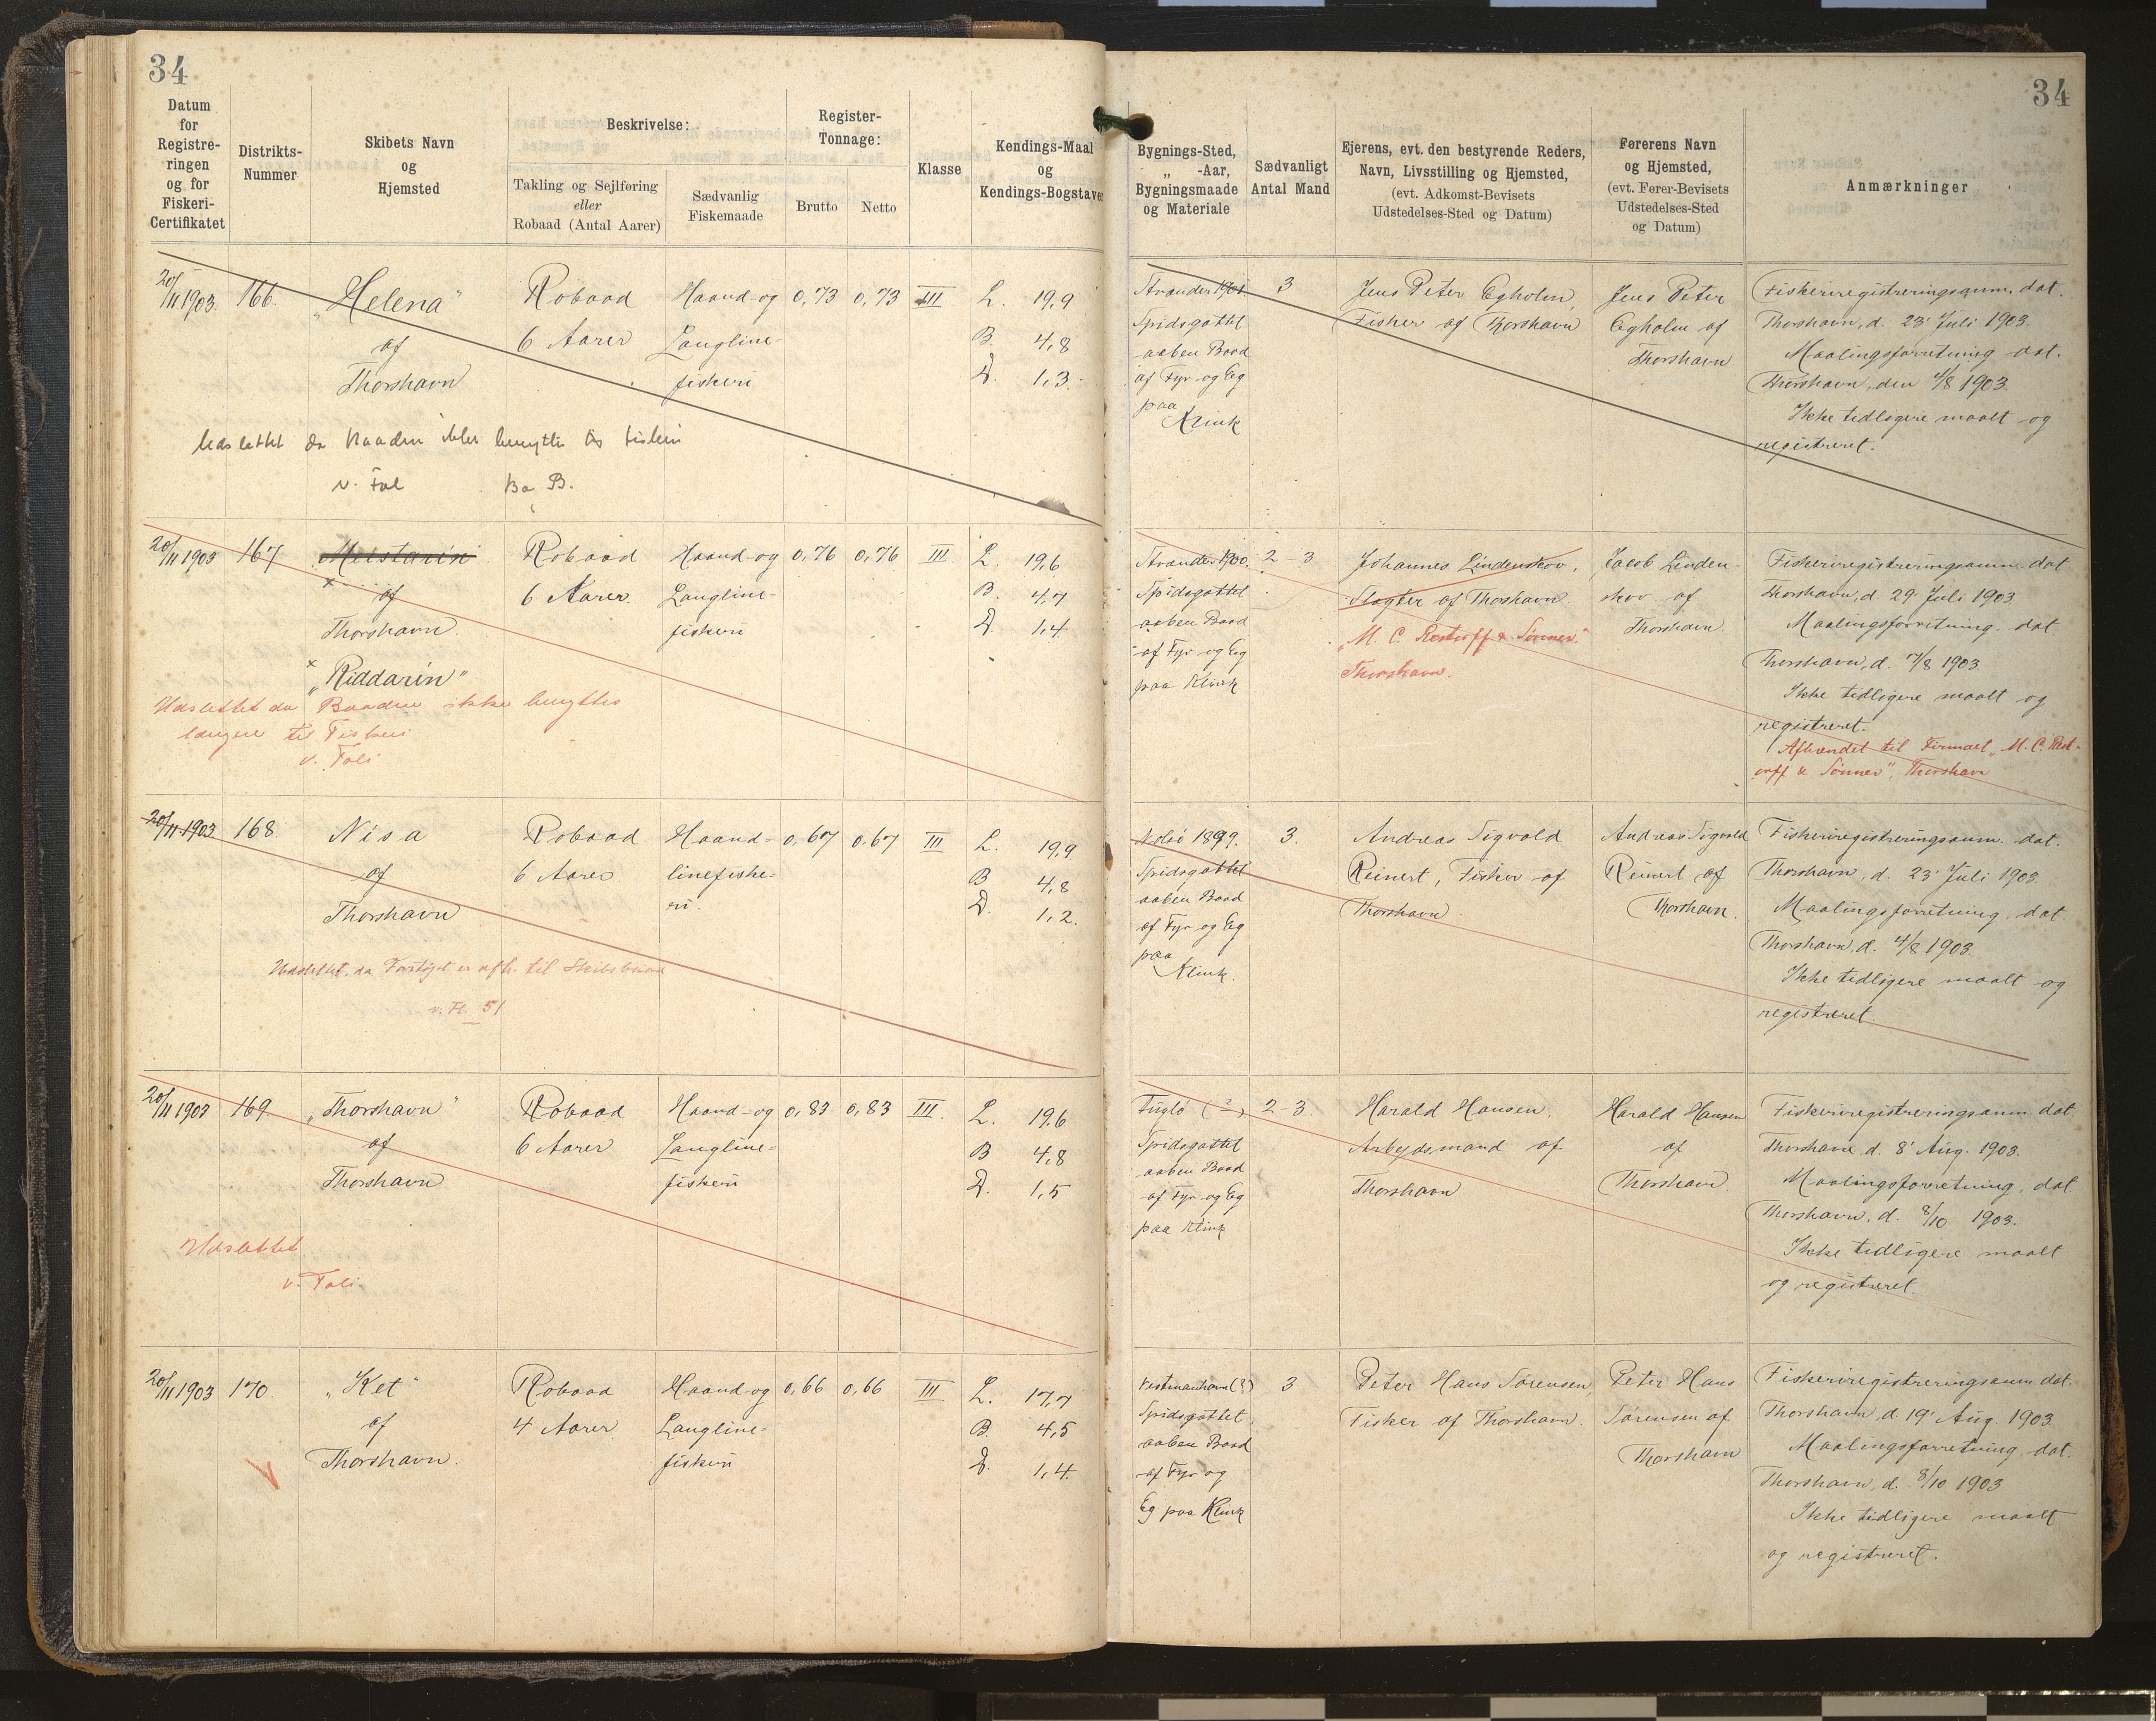 34
34
Datum for Registreringen og for Fiskeri-Certifikatet
Distrikts-Nummer
Skibets Navn og Hjemsted
Beskrivelse:
Takling og Sejlføring eller Robaad (Antal Aarer)
Sædvanlig Fiskemaade
Register-Tonnage:
Brutto
Netto
Klasse
Kendings-Maal og Kendings-Bogstaver
Bygnings-Sted, „ -Aar, Bygningsmaade og Materiale
Sædvanligt Antal Mand
Ejerens, evt. den bestyrende Reders, Navn, Livsstilling og Hjemsted, (evt. Adkomst-Bevisets Udstedelses-Sted og Datum)
Førerens Navn og Hjemsted, (evt. Fører-Bevisets Udstedelses-Sted og Datum)
Anmærkninger
20/11 1903. 166. „Helena"
af
Thorshavn
Robaad
6 Aarer
Haand- og
Langline-
fiskeri
0,73 0,73 III
L. 19,9
B. 4,8
D. 1,3.
Strander 1901
Spidsgattet
aaben Baad
af Fyr og Eg
paa
Klink
3
Jens Peter Egholm,
Fisker af Thorshavn
Jens Peter
Egholm af
Thorshavn
Fiskeriregistreringsanm. dat.
Thorshavn, d. 23' Juli 1903.
Maalingsforretning dat.
Thorshavn, den 4/8 1903.
Ikke tidligere maalt og
registreret.
Udslettet da Baaden ikke benyttes til fiskeri
20/11 1903 167 Meistarin
x af
Thorshavn.
x „Riddarin"
Robaad
6 Aarer.
Haand- og
Langline-
fiskeri
0,76 0,76 III.
L. 19,6
B. 4,7
D. 1,4
Udslettet da Baaden ikke benyttes
længere til Fiskeri
v. Foli
Strander 1900.
Spidsgattet
aaben Baad
af Fyr og Eg
paa Klink
2-3
Johannes Lindenskov,
Slagter af Thorshavn
„M. C. Restorff & Sønner."
Thorshavn.
Jacob Linden-
skov af
Thorshavn
Fiskeriregistreringsanm. dat
Thorshavn, d. 29' Juli 1903
Maalingsforretning dat
Thorshavn, d. 7/8 1903
Ikke tidligere maalt og
registreret.
Afhændet til Firmaet „M. C. Rest-
orff & Sønner", Thorshavn
20/11 1903 168. Nisa
af
Thorshavn
Robaad
6 Aarer
Haand-
linefiske-
ri.
0,67 0,67 III
L. 19,9
B 4,8
D. 1,2.
Udslettet, da Fartøjet er afh. til Skibsbaad
v. Fl. 51
Nolsø 1899.
Spidsgattet
aaben Baad
af Fyr og Eg
paa
Klink.
3.
Andreas Sigvald
Reinert, Fisker af
Thorshavn
Andreas Sigvald
Reinert af
Thorshavn.
Fiskeriregistreringsanm. dat.
Thorshavn, d. 23' Juli 1903.
Maalingsforretning, dat.
Thorshavn, d. 4/8 1903.
Ikke tidligere maalt og
registreret.
20/11 1903 169. „Thorshavn"
af
Thorshavn
Robaad
6 Aarer
Haand- og
Langline-
fiskeri
0,83 0,83 III.
L. 19,6
B 4,8
D. 1,5
Udslettet
v. Foli
Fuglø (?)
Spidsgattet
aaben Baad
af Fyr og Eg
paa Klink
2-3.
Harald Hansen,
Arbejdsmand af
Thorshavn
Harald Hansen
af
Thorshavn.
Fiskeriregistreringsanm. dat.
Thorshavn, d. 8' Aug. 1903.
Maalingsforretning, dat.
Thorshavn, d. 8/10 1903.
Ikke tidligere maalt
og registreret.
20/11 1903 170 „Ket"
af
Thorshavn.
Robaad
4 Aarer
Haand- og
Langline-
fiskeri
0,66 0,66 III
L. 17,7
B. 4,5
D. 1,4.
Vestmanhavn (?)
Spidsgattet
aaben Baad
af Fyr og
Eg paa Klink
3
Peter Hans Sørensen,
Fisker af Thorshavn.
Peter Hans
Sørensen af
Thorshavn
Fiskeriregistreringsanm. dat.
Thorshavn, d. 19' Aug. 1903.
Maalingsforretning, dat.
Thorshavn, d. 8/10 1903
Ikke tidligere maalt
og registreret.